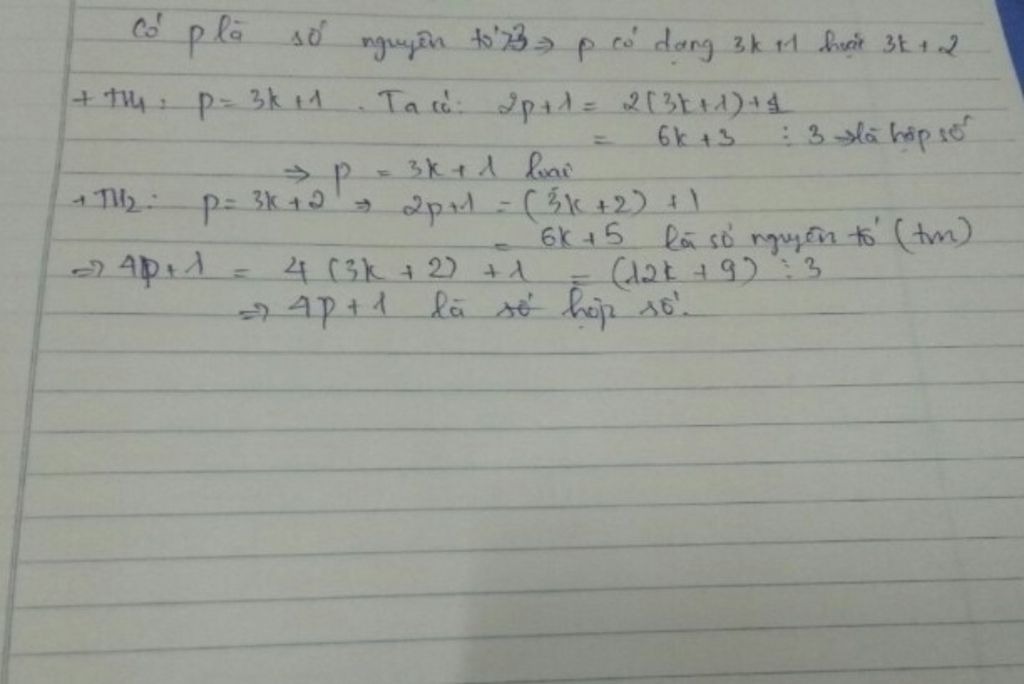 Có p là số nguyên tố >3 => p có dạng 3k+1 hoặc 3k+2
+ TH1: p = 3k+1. Ta có: 2p+1 = 2(3k+1)+1
= 6k+3 ⋮ 3 → là hợp số
=> p = 3k+1 loại
+ TH2: p = 3k+2 => 2p+1 = (3k+2)+1
= 6k+5 là số nguyên tố (tm)
=> 4p+1 = 4(3k+2)+1 = (12k+9) ⋮ 3
=> 4p+1 là số hợp số.